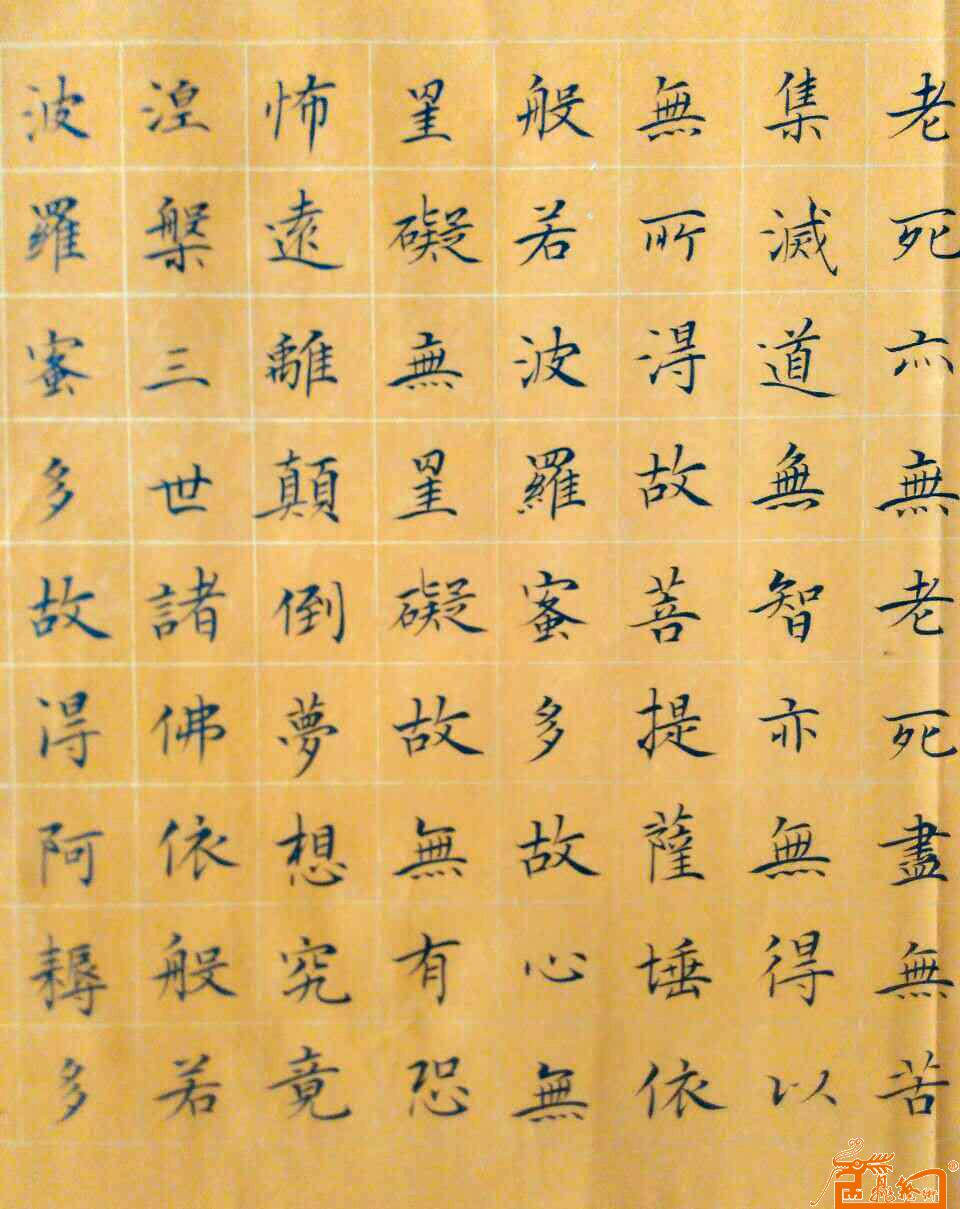 老死亦無老死盡無苦
集滅道無智亦無得以
無所得故菩提薩埵依
般若波羅蜜多故心無
罣礙無罣礙故無有恐
怖遠離顛倒夢想究竟
涅槃三世諸佛依般若
波羅蜜多故得阿耨多